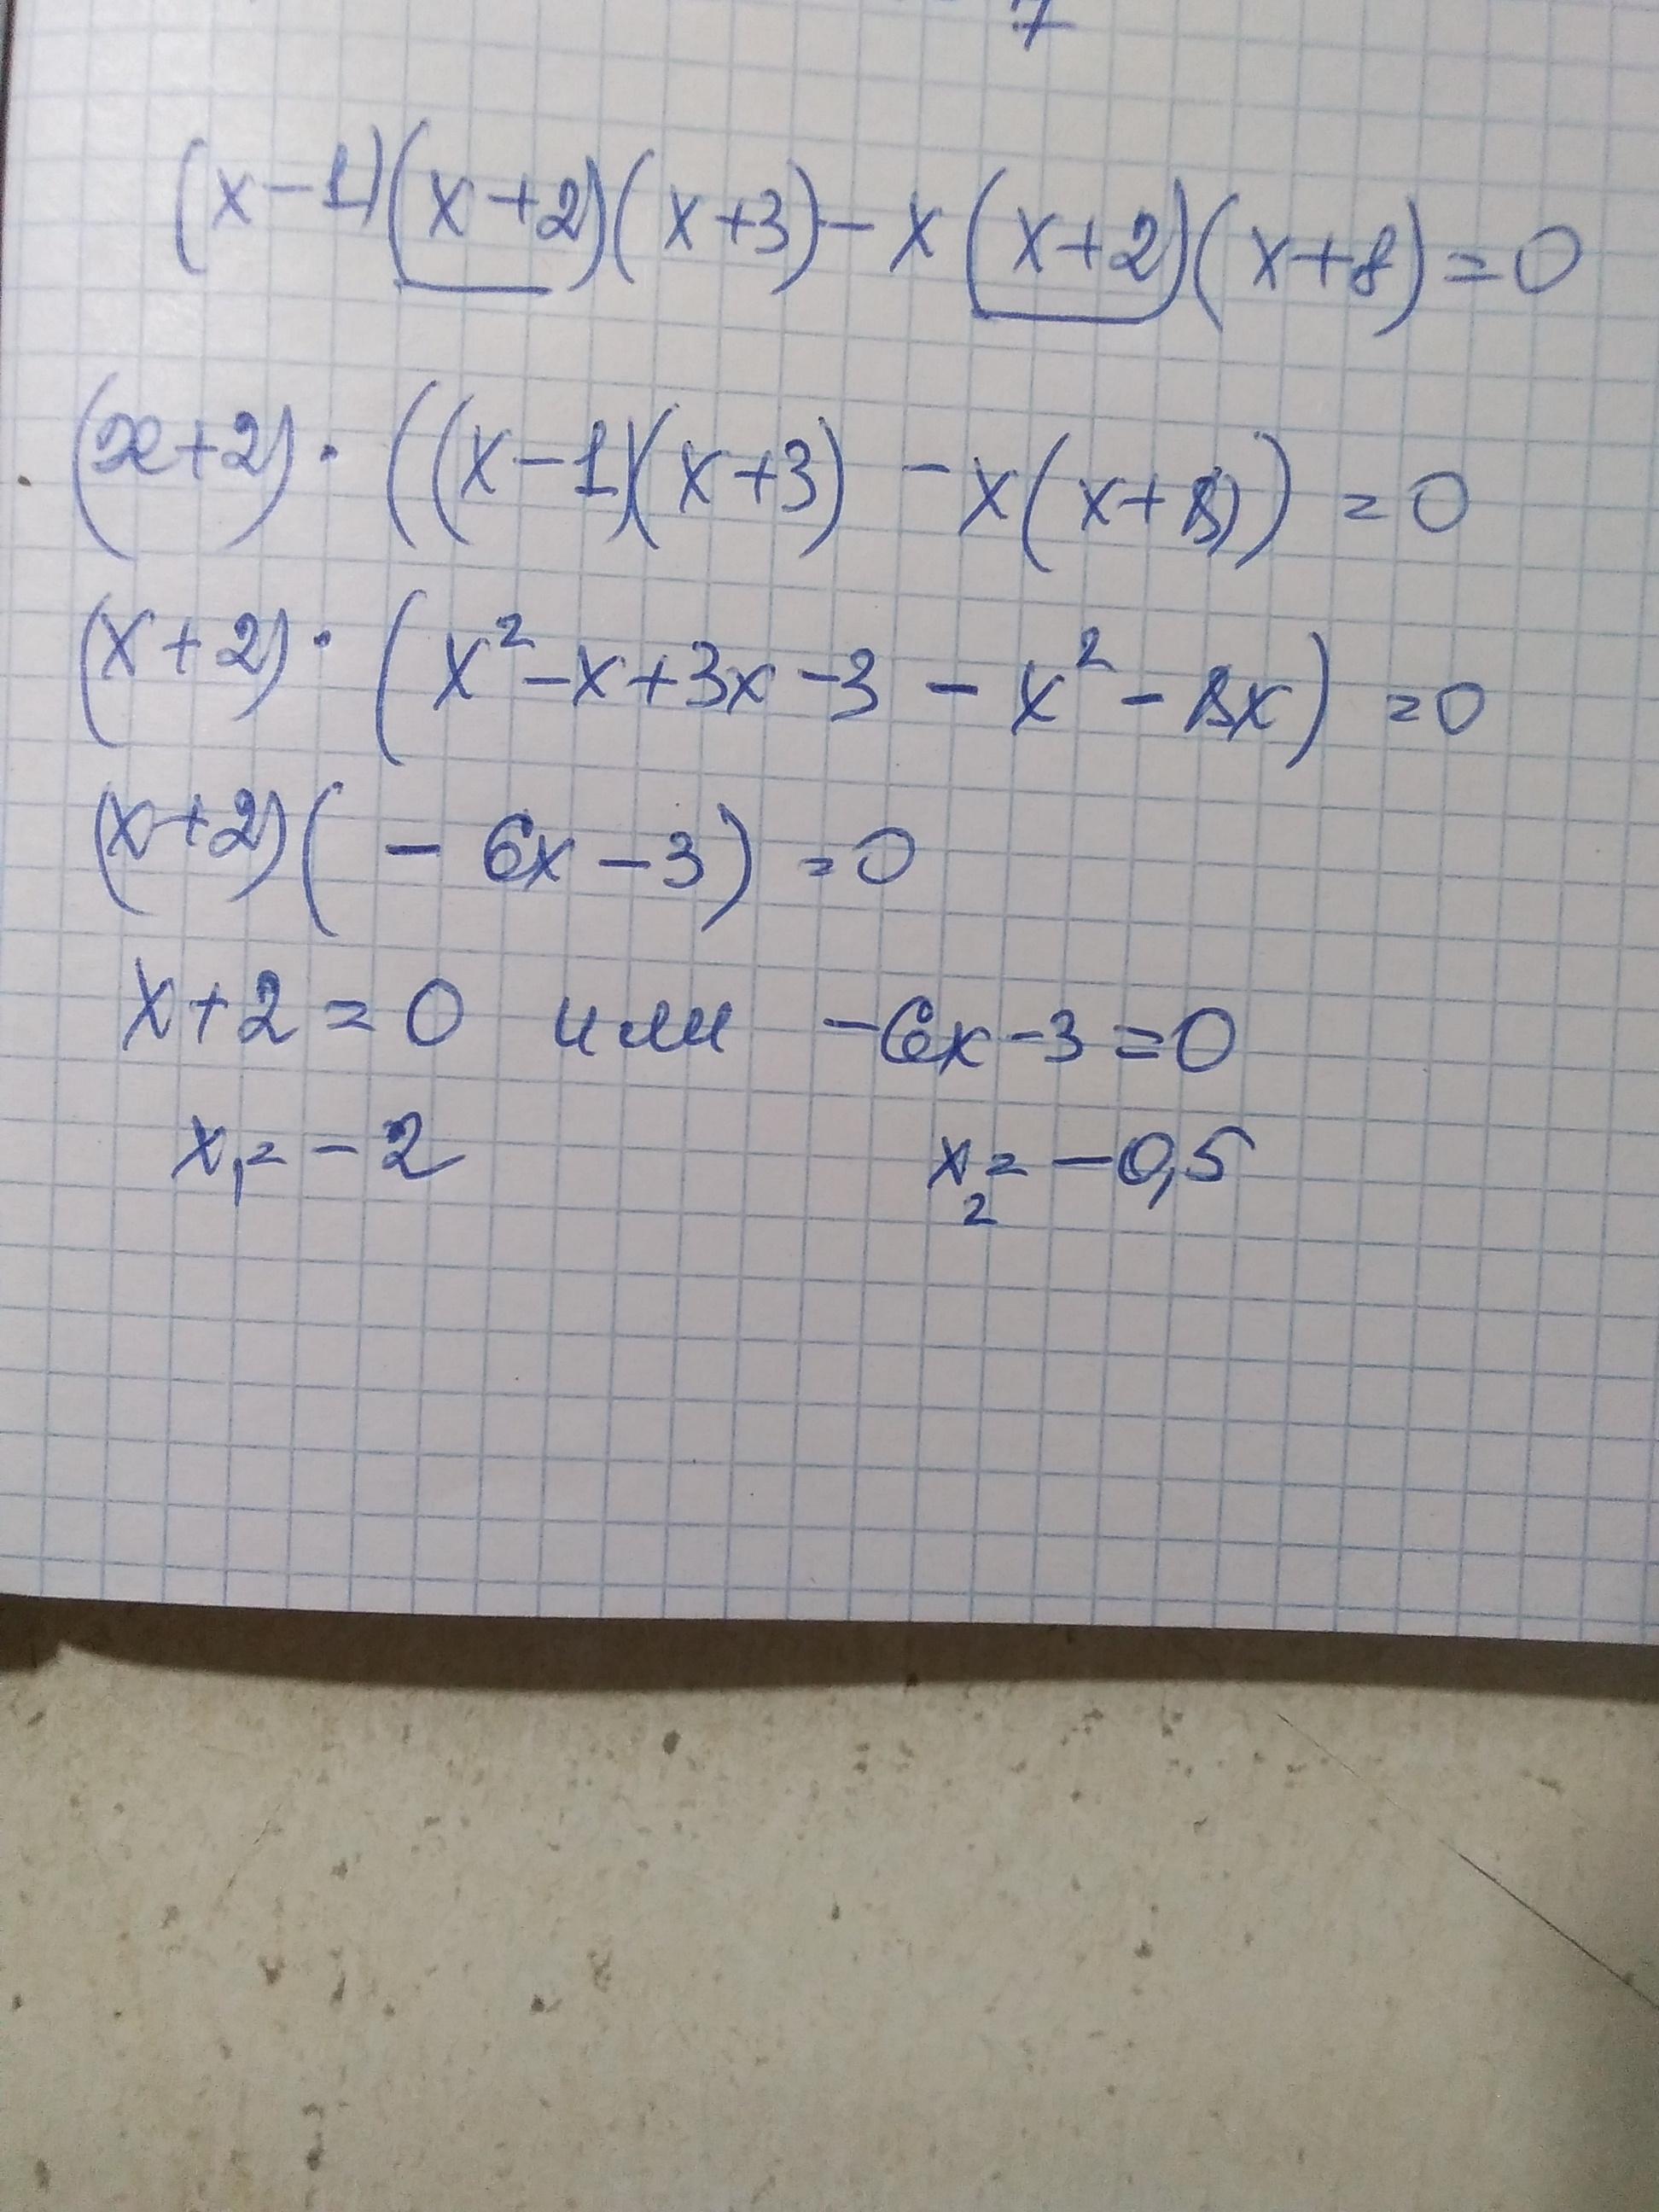 7
(x-1)(x+2)(x+3)-x(x+2)(x+8)=0
(x+2)·((x-1)(x+3)-x(x+8))=0
(x+2)·(x²-x+3x-3-x²-8x)=0
(x+2)(-6x-3)=0
x+2=0 или -6x-3=0
x₁=-2 x₂=-0,5